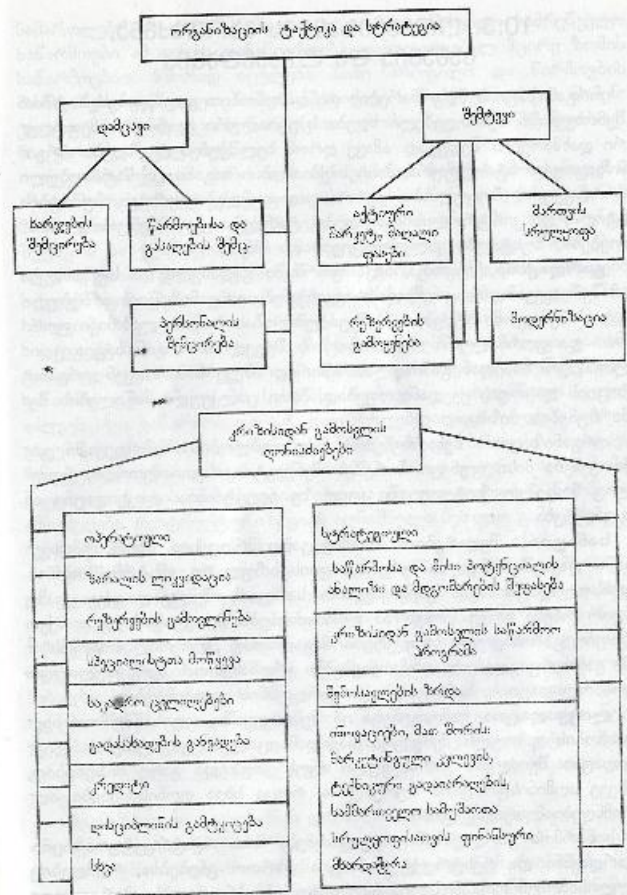 ორგანიზაციის ტაქტიკა და სტრატეგია
დამცავი
შემტევი
ხარჯების
შემცირება
წარმოებისა და
გასაღების შემც-
აქტიური
მარკეტ. მაღალი
ფასები
მართვის
სრულყოფა
პერსონალის
შემცირება
რეზერვების
გამოყენება
მოდერნიზაცია
კრიზისიდან გამოსვლის
ღონისძიებები
ოპერატიული
ზარალის ლიკვიდაცია
რეზერვების გამოვლინება
სპეციალისტთა მოწვევა
საკადრო ცვლილებები
გადასახადების განვადება
კრედიტი
დისციპლინის გამტკიცება
სხვა
სტრატეგიული
საწარმოსა და მისი პოტენციალის
ანალიზი და მდგომარების შეფასება
კრიზისიდან გამოსვლის საწარმოო
პროგრამა
შემოსავლების ზრდა
ინოვაციები, მათ შორის:
მარკეტინგული კვლევის,
ტექნიკური გადაიარაღების,
სამმართველო სამუშაოთა
სრულყოფისათვის ფინანსური
მხარდაჭერა